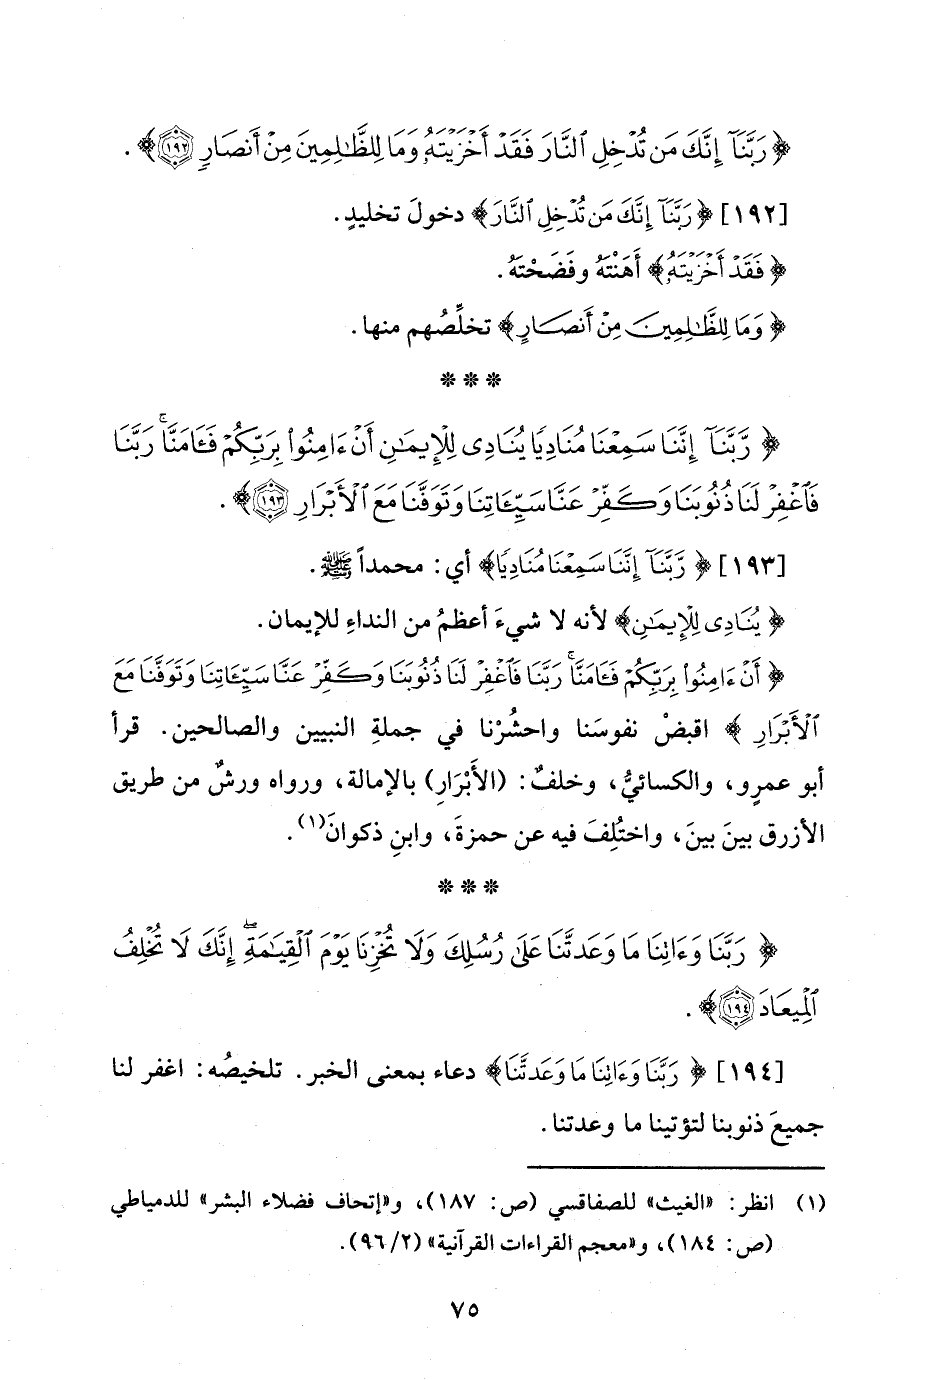 ﴿ رَبَّنَآ إِنَّكَ مَن تُدْخِلِ ٱلنَّارَ فَقَدْ أَخْزَيْتَهُۥ وَمَا لِلظَّٰلِمِينَ مِنْ أَنصَارٍ ١٩٢﴾ .
[١٩٢] ﴿ رَبَّنَآ إِنَّكَ مَن تُدْخِلِ ٱلنَّارَ﴾ دخولَ تخليدٍ.
﴿ فَقَدْ أَخْزَيْتَهُۥ﴾ أَهَنْتَهُ وفَضَحْتَهُ.
﴿ وَمَا لِلظَّٰلِمِينَ مِنْ أَنصَارٍ﴾ تخلِّصُهم منها.
* * *
﴿ رَّبَّنَآ إِنَّنَا سَمِعْنَا مُنَادِيًا يُنَادِى لِلْإِيمَٰنِ أَنْ ءَامِنُوا۟ بِرَبِّكُمْ فَـَٔامَنَّا ۚ رَبَّنَا
فَٱغْفِرْ لَنَا ذُنُوبَنَا وَكَفِّرْ عَنَّا سَيِّـَٔاتِنَا وَتَوَفَّنَا مَعَ ٱلْأَبْرَارِ ١٩٣﴾ .
[١٩٣] ﴿ رَّبَّنَآ إِنَّنَا سَمِعْنَا مُنَادِيًا﴾ أي: محمداً ﷺ.
﴿ يُنَادِى لِلْإِيمَٰنِ﴾ لأنه لا شيءَ أعظمُ من النداءِ للإيمان.
﴿ أَنْ ءَامِنُوا۟ بِرَبِّكُمْ فَـَٔامَنَّا ۚ رَبَّنَا فَٱغْفِرْ لَنَا ذُنُوبَنَا وَكَفِّرْ عَنَّا سَيِّـَٔاتِنَا وَتَوَفَّنَا مَعَ
ٱلْأَبْرَارِ ﴾ اقبضْ نفوسَنا واحشُرْنا في جملةِ النبيين والصالحين. قرأ
أبو عمرٍو، والكسائيُّ، وخلفٌ: (الأَبْرَارِ) بالإمالة، ورواه ورشٌ من طريق
الأزرق بينَ بينَ، واختُلِفَ فيه عن حمزةَ، وابنِ ذكوانَ(١).
* * *
﴿ رَبَّنَا وَءَاتِنَا مَا وَعَدتَّنَا عَلَىٰ رُسُلِكَ وَلَا تُخْزِنَا يَوْمَ ٱلْقِيَٰمَةِ ۖ إِنَّكَ لَا تُخْلِفُ
ٱلْمِيعَادَ ١٩٤﴾ .
[١٩٤] ﴿ رَبَّنَا وَءَاتِنَا مَا وَعَدتَّنَا﴾ دعاء بمعنى الخبر. تلخيصُه: اغفر لنا
جميعَ ذنوبنا لتؤتينا ما وعدتنا.
(١) انظر: «الغيث» للصفاقسي (ص: ١٨٧)، و«إتحاف فضلاء البشر» للدمياطي
(ص: ١٨٤)، و«معجم القراءات القرآنية» (٢/ ٩٦).
٧٥